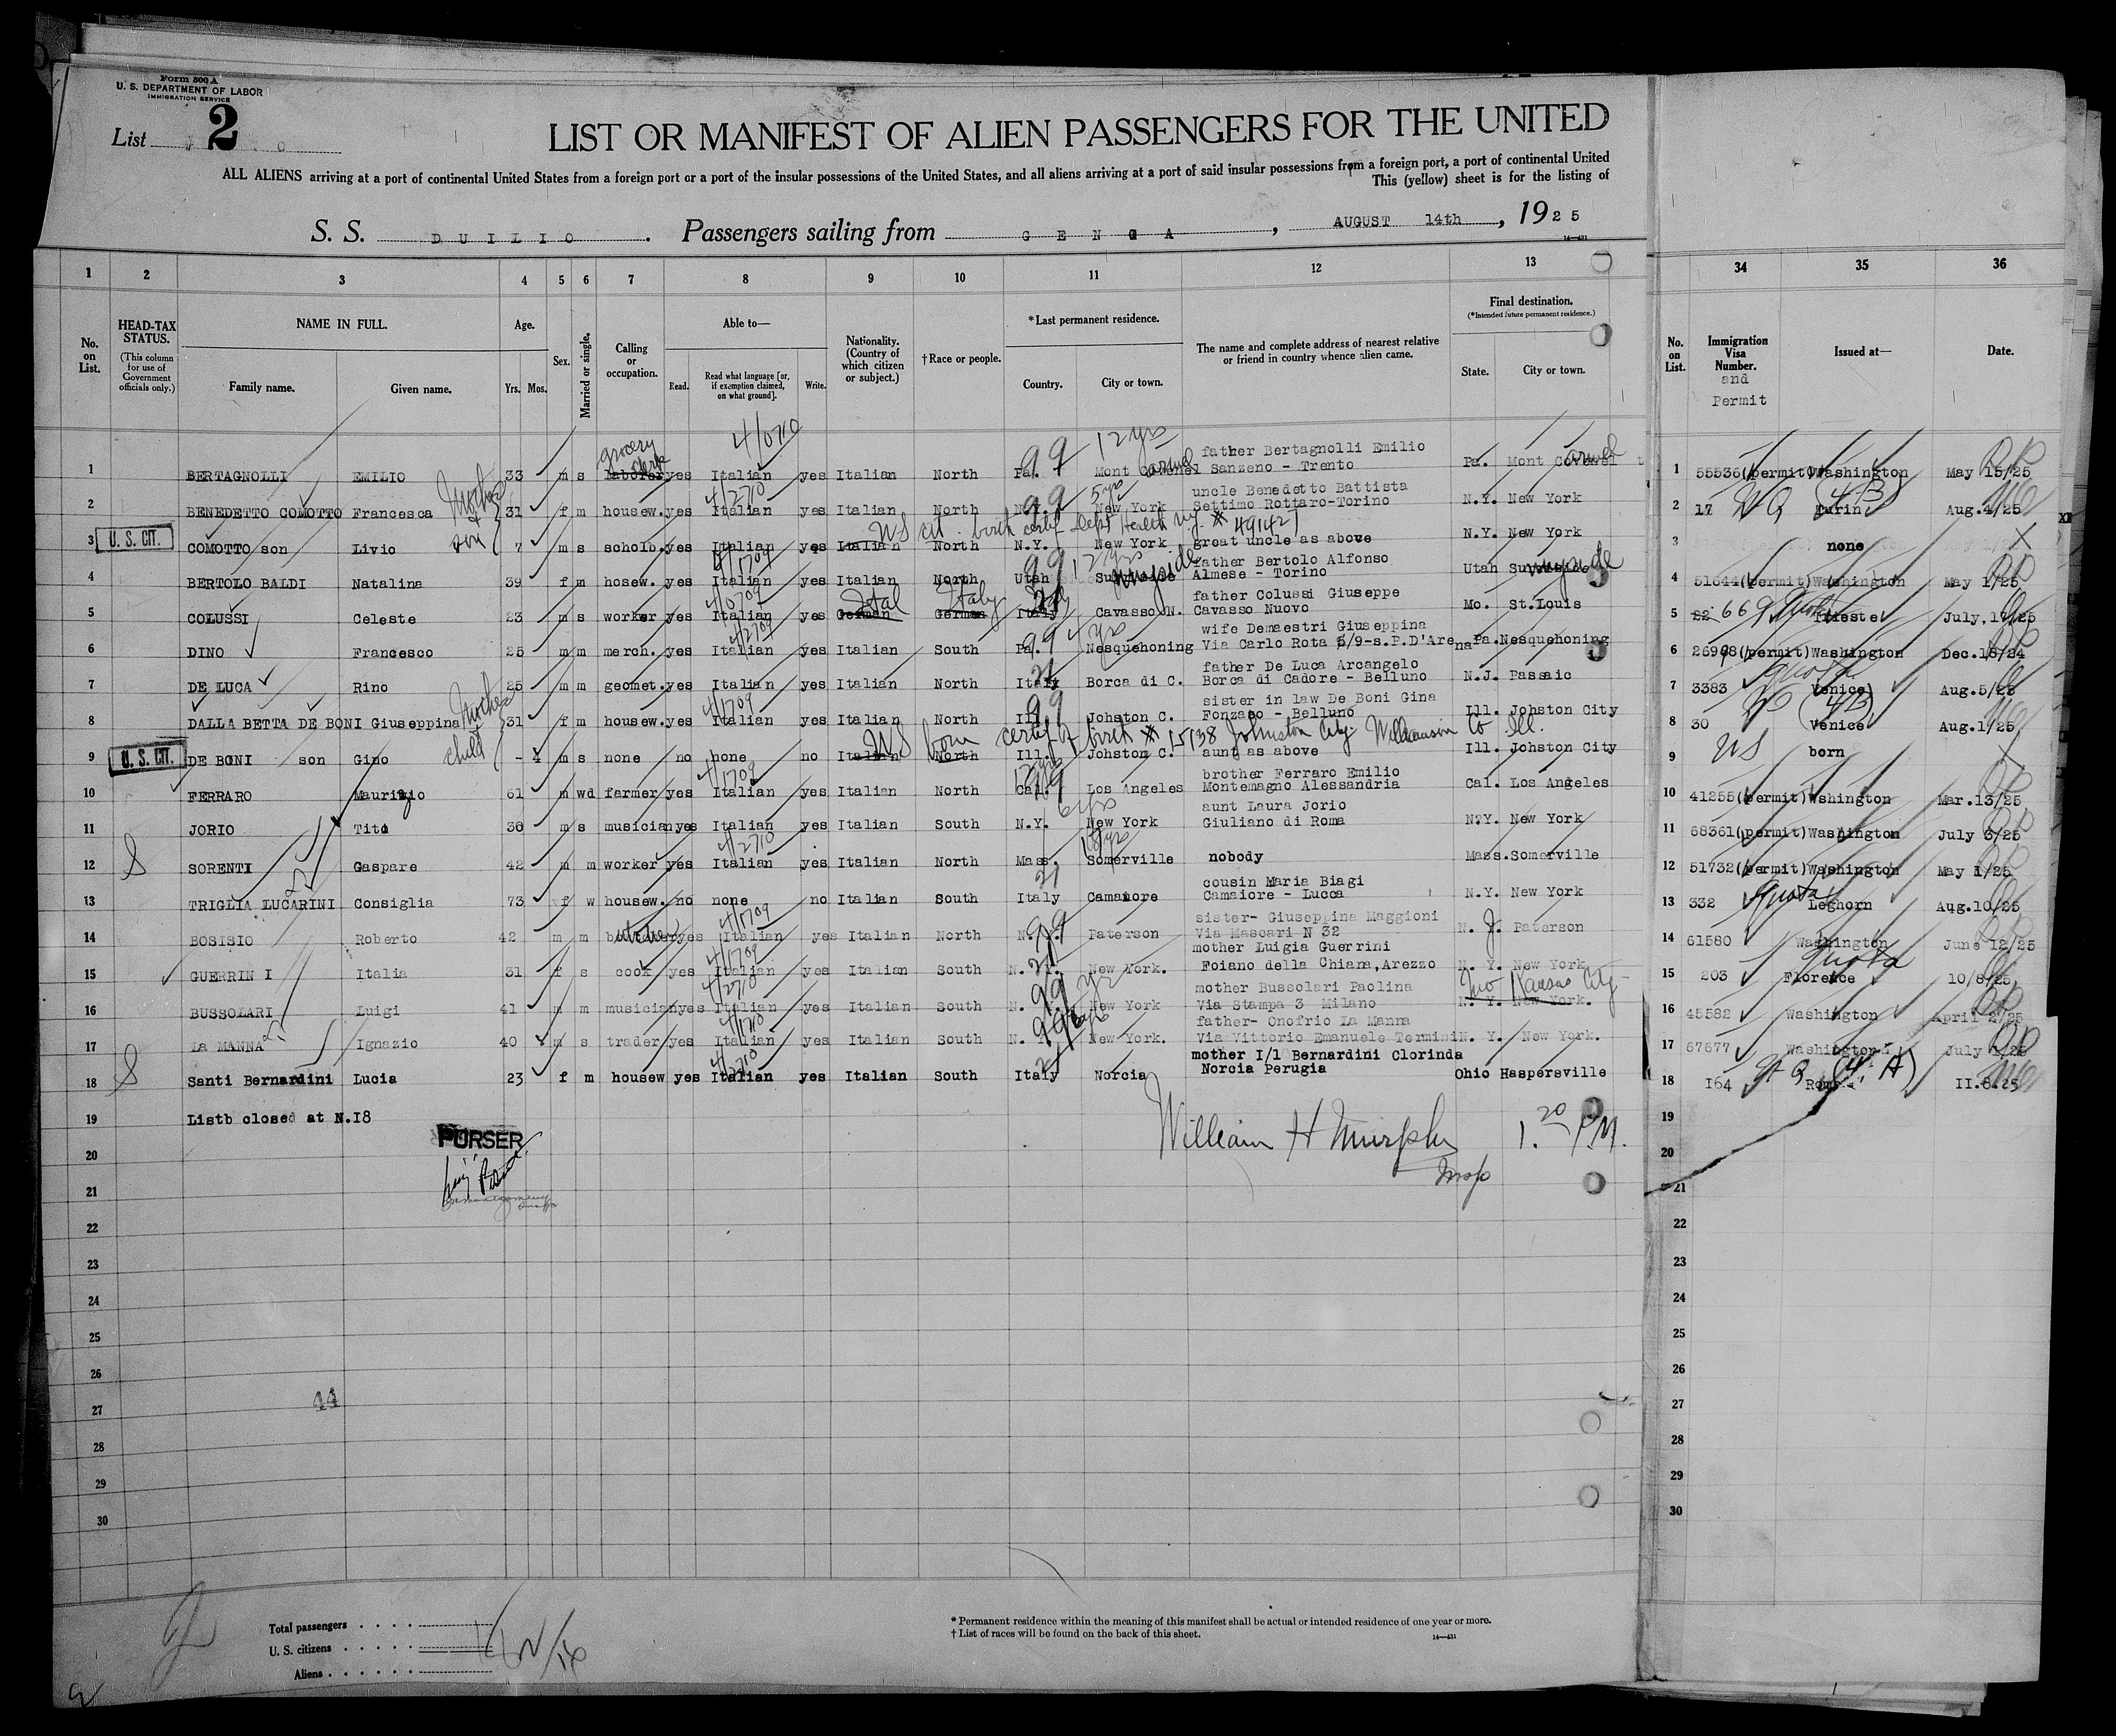 Form 500 A
U. S. DEPARTMENT OF LABOR
IMMIGRATION SERVICE
List 2
LIST OR MANIFEST OF ALIEN PASSENGERS FOR THE UNITED
ALL ALIENS arriving at a port of continental United States from a foreign port or a port of the insular possessions of the United States, and all aliens arriving at a port of said insular possessions from a foreign port, a port of continental United
This (yellow) sheet is for the listing of
S. S. DUILIO. Passengers sailing from GENOA, AUGUST 14th, 1925
14—431
1 2 3 4 5 6 7 8 9 10 11 12 13 34 35 36
No. on List.
HEAD-TAX STATUS.
(This column for use of Government officials only.)
NAME IN FULL.
Family name. Given name.
Age.
Yrs. Mos.
Sex.
Married or single.
Calling or occupation.
Able to—
Read. Read what language [or, if exemption claimed, on what ground]. Write.
Nationality. (Country of which citizen or subject.)
†Race or people.
*Last permanent residence.
Country. City or town.
The name and complete address of nearest relative or friend in country whence alien came.
Final destination.
(*Intended future permanent residence.)
State. City or town.
No. on List.
Immigration Visa Number. and Permit
Issued at—
Date.
4/0710 12 yrs
grocery clerk
father Bertagnolli Emilio
1 BERTAGNOLLI EMILIO 33 m s laborer yes Italian yes Italian North Pa. 99 Mont Sanzeno - Trento Pa. Mont 1 55536(permit)Washington May 15/25
Mother 4/2710 99 5 yrs uncle Benedetto Battista
2 BENEDETTO COMOTTO Francesca 31 f m housew. yes Italian yes Italian North N.Y. New York Settimo Rottaro-Torino N.Y. New York 2 17 NQ Turin (4B) Aug.4/25
US cit. birth certif Dept Health N.Y. # 49142
3 U. S. CIT. COMOTTO son Livio son 7 m s scholb. yes Italian yes Italian North N.Y. New York great uncle as above N.Y. New York 3 none
4/1709 99 father Bertolo Alfonso
4 BERTOLO BALDI Natalina 39 f m hosew. yes Italian yes Italian North Utah Sunnyside Almese - Torino Utah Sunnyside 4 51644(permit)Washington May 1/25
4/0709 Ital Italy father Colussi Giuseppe
5 COLUSSI Celeste 23 m s worker yes Italian yes German German Italy Cavasso N. Cavasso Nuovo Mo. St.Louis 5 22 669 Quota Trieste July,17/25
4/2709 99 4 yrs wife Demaestri Giuseppina
6 DINO Francesco 25 m m merch. yes Italian yes Italian South Pa. Nesquehoning Via Carlo Rota 5/9-s.P.D'Arena Pa. Nesquehoning 6 26988(permit)Washington Dec.18/24
21 father De Luca Arcangelo
7 DE LUCA Rino 25 m m geomet. yes Italian yes Italian North Italy Borca di C. Borca di Cadore - Belluno N.J. Passaic 7 3383 Quota Venice Aug.5/25
Mother 4/1709 99 sister in law De Boni Gina
8 DALLA BETTA DE BONI Giuseppina 31 f m housew. yes Italian yes Italian North Ill. Johston C. Fonzaso - Belluno Ill. Johston City 8 30 Venice (4B) Aug.1/25
US born certif of birth # 15138 Johnston City Williamson Co Ill.
9 U. S. CIT. DE BONI son Gino child - 4 m s none no none no Italian North Ill. Johston C. aunt as above Ill. Johston City 9 US born
4/1709 12 yrs 99 brother Ferraro Emilio
10 FERRARO Maurizio 61 m wd farmer yes Italian yes Italian North Cal. Los Angeles Montemagno Alessandria Cal. Los Angeles 10 41255(permit)Wshington Mar.13/25
6 yrs aunt Laura Jorio
11 JORIO Tito 36 m s musician yes Italian yes Italian South N.Y. New York Giuliano di Roma N.Y. New York 11 68361(permit)Washington July 3/25
4/2710
12 SORENTI Gaspare 42 m m worker yes Italian yes Italian North Mass. Somerville nobody Mass. Somerville 12 51732(permit)Washington May 1/25
21 cousin Maria Biagi
13 TRIGLIA LUCARINI Consiglia 73 f w housew. no none no Italian South Italy Camaiore Camaiore - Lucca N.Y. New York 13 332 Quota Leghorn Aug.10/25
4/1709 99 sister- Giuseppina Maggioni
14 BOSISIO Roberto 42 m m butcher yes Italian yes Italian North N. J. Paterson Via Mascari N 32 N. J. Paterson 14 61580 Washington June 12/25
4/1709 21 mother Luigia Guerrini
15 GUERRIN I Italia 31 f s cook yes Italian yes Italian South N. Y. New York. Foiano della Chiana,Arezzo N. Y. New York 15 203 Quota Florence 10/8/25
4/2710 99 mother Bussolari Paolina Mo Kansas City
16 BUSSOLARI Luigi 41 m m musician yes Italian yes Italian South N. Y. New York Via Stampa 3 Milano N. Y. New York. 16 45582 Washington April 2/25
4/1710 99 father- Onofrio La Manna
17 La MANNA Ignazio 40 m s trader yes Italian yes Italian South N. New York. Via Vittorio Emanuele Termini N. Y. New York. 17 67677 Washington July 1/25
4/2710 21 mother I/l Bernardini Clorinda
18 Santi Bernardini Lucia 23 f m housew yes Italian yes Italian South Italy Norcia Norcia Perugia Ohio Haspersville 18 I64 Roma (4-A) II.8.25
19 Listb closed at N.I8 19
PURSER
William H Murphy 1.20 P.M.
Insp
20 20
21 21
22 22
23 23
24 24
25 25
26 26
27 44 27
28 28
29 29
30 30
Total passengers
U. S. citizens
Aliens
* Permanent residence within the meaning of this manifest shall be actual or intended residence of one year or more.
† List of races will be found on the back of this sheet.
14—431